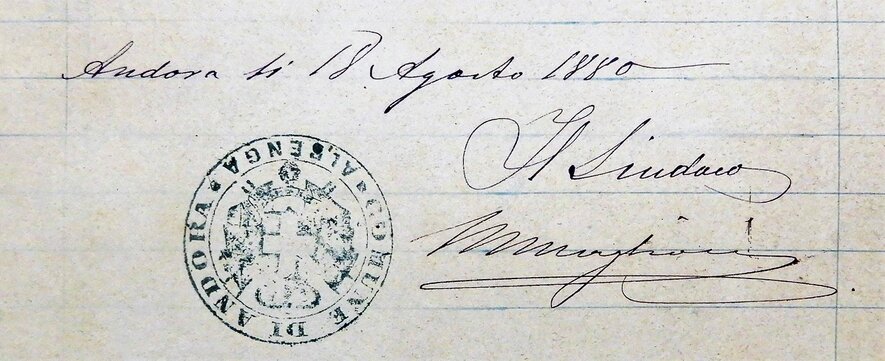 Andora li 18 Agosto 1880
Il Sindaco
COMUNE DI ANDORA
ALBENGA